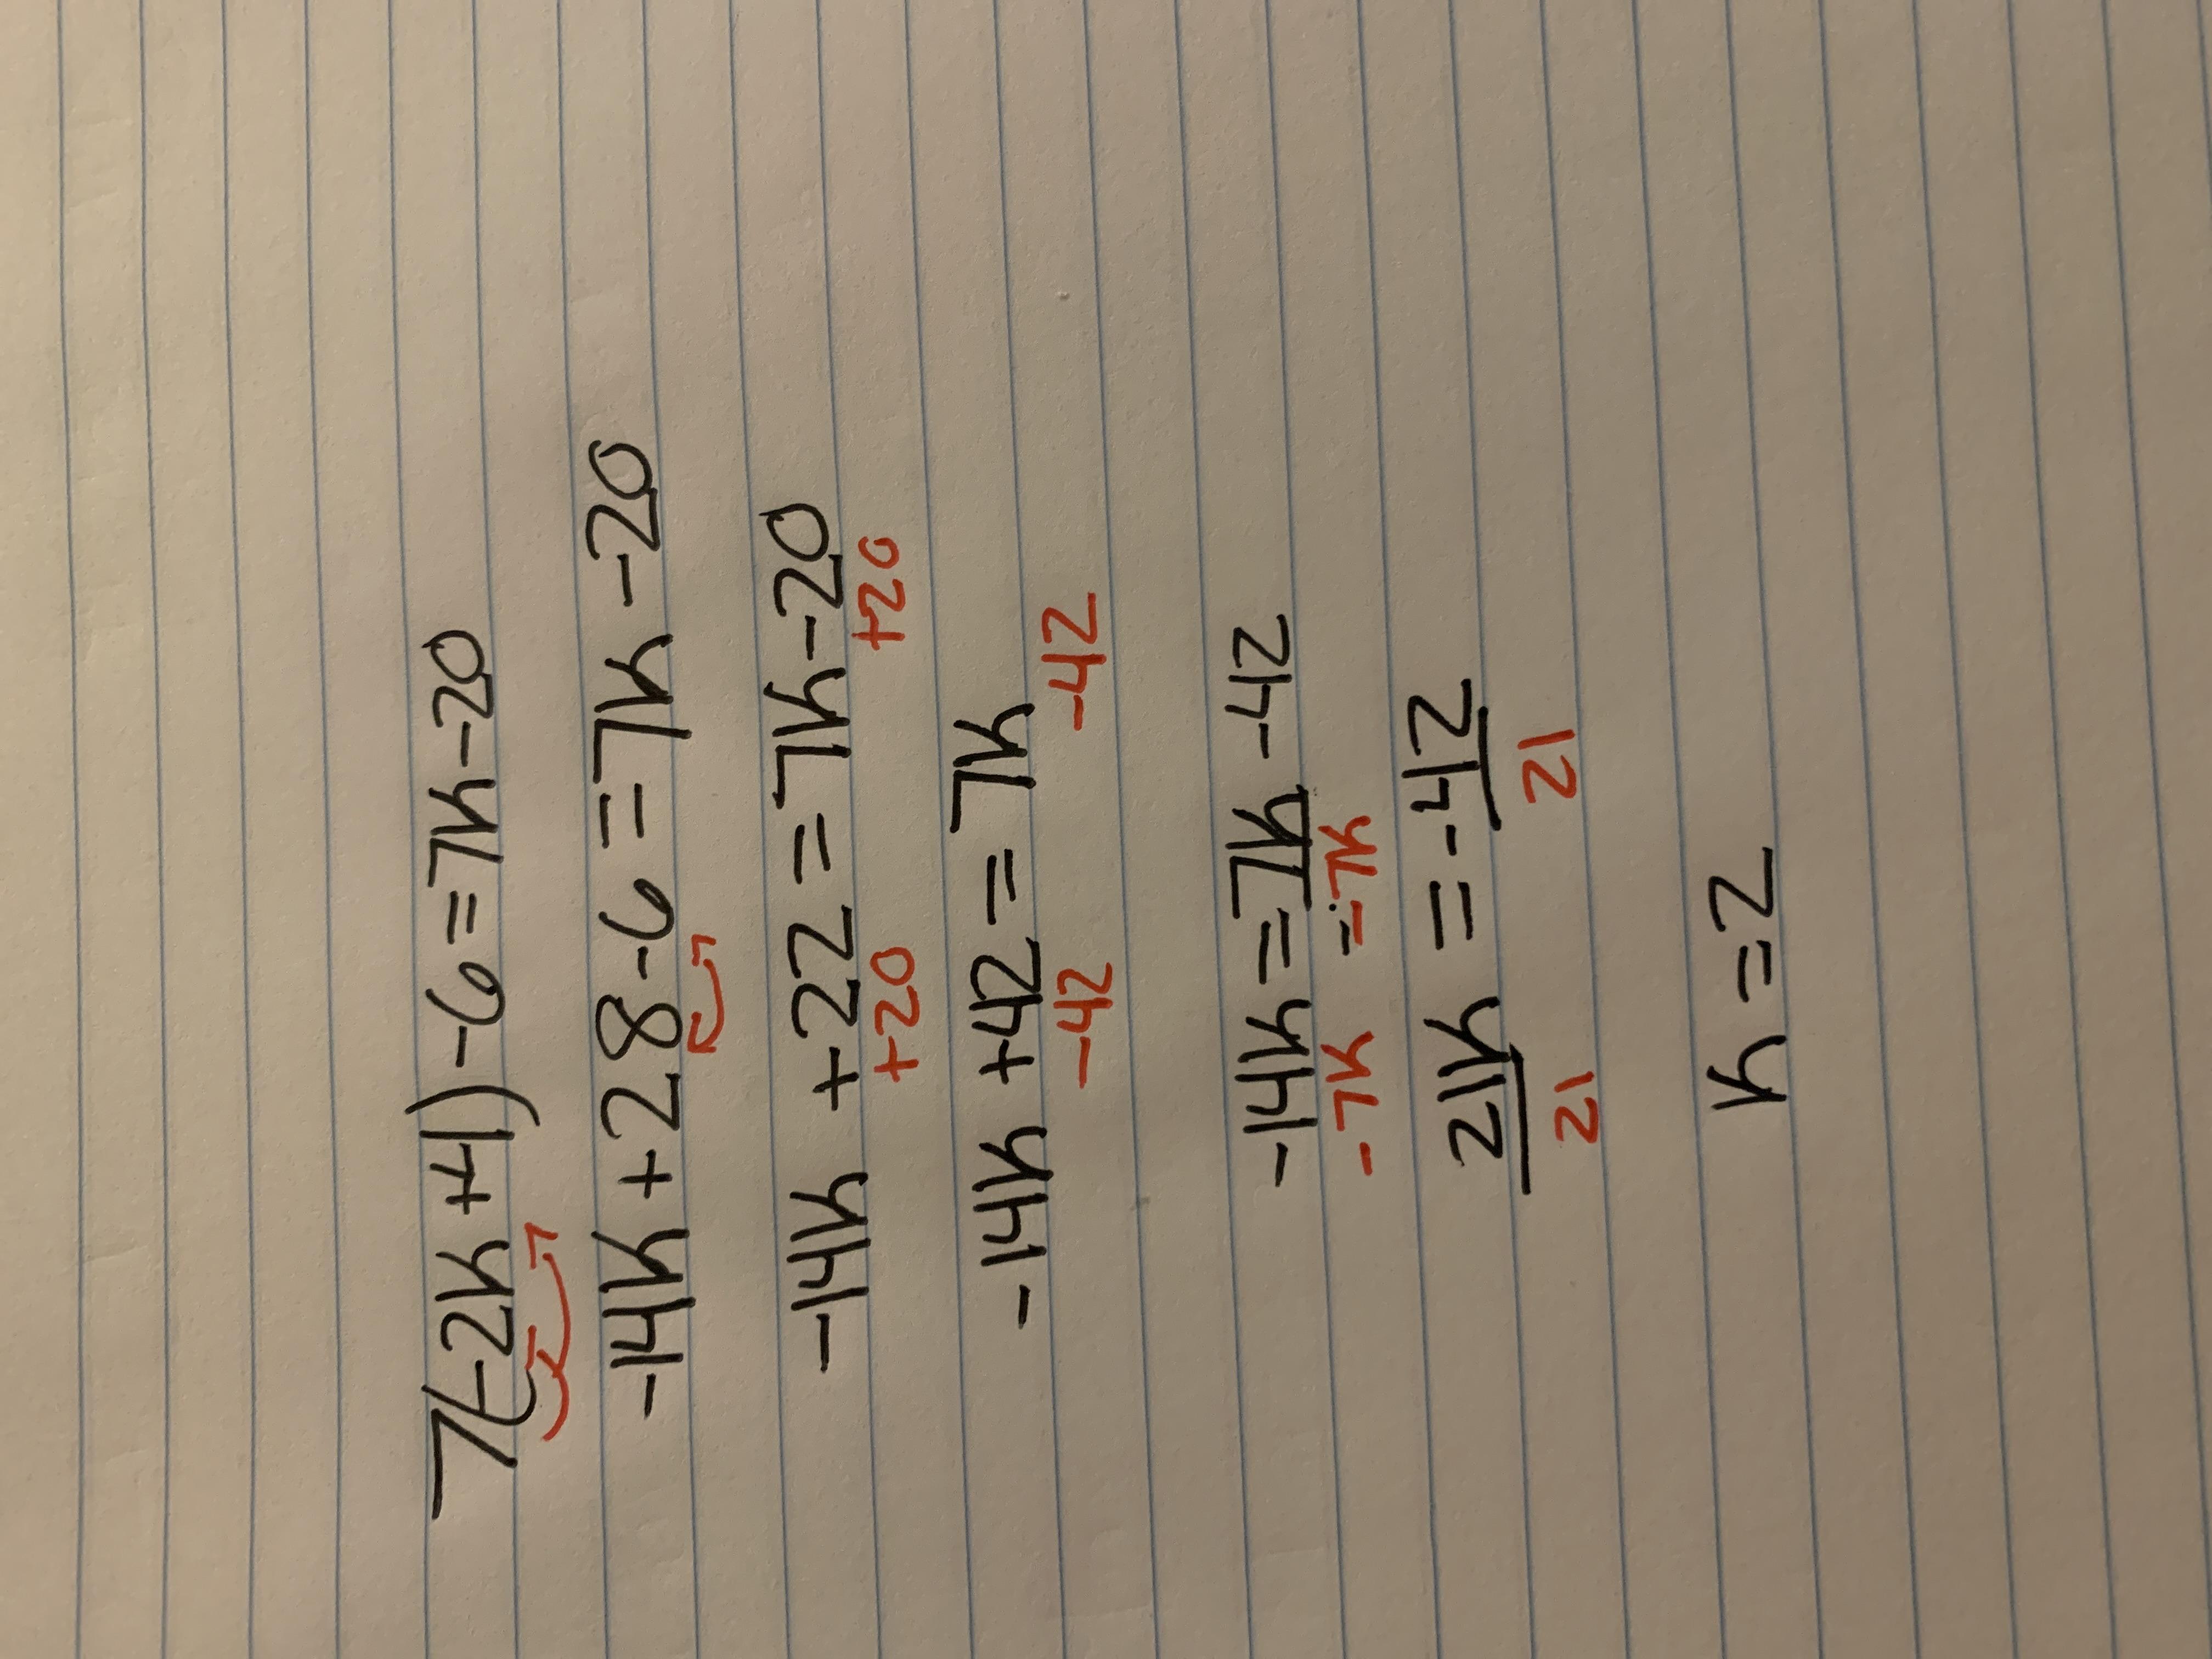 7(-2K+4)-6=7K-20
-14K+28-6=7K-20
-14K+22=7K-20
+20 +20
-14K+42=7K
-42 -42
-14K=7K-42
-7K =-7K
21K=-42
21 21
K=2